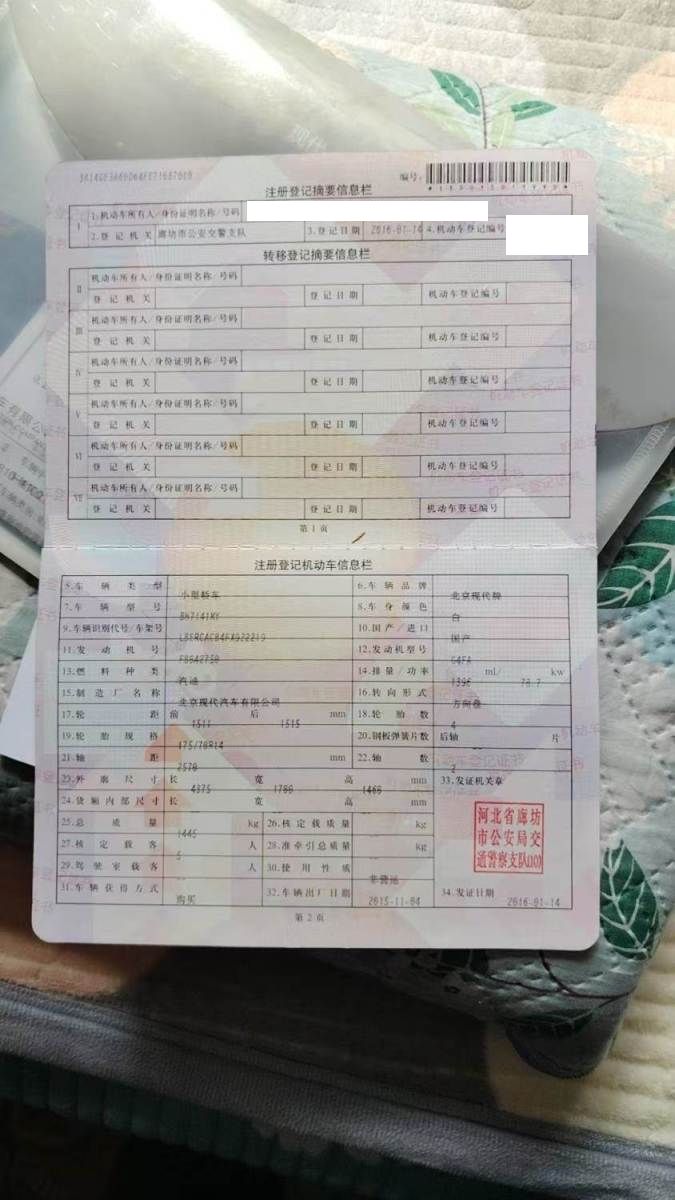 编号:
注册登记摘要信息栏
I 1.机动车所有人/身份证明名称/号码
2.登记机关 廊坊市公安交警支队 3.登记日期 2016-01-14 4.机动车登记编号
转移登记摘要信息栏
II 机动车所有人/身份证明名称/号码
登记机关 登记日期 机动车登记编号
III 机动车所有人/身份证明名称/号码
登记机关 登记日期 机动车登记编号
IV 机动车所有人/身份证明名称/号码
登记机关 登记日期 机动车登记编号
V 机动车所有人/身份证明名称/号码
登记机关 登记日期 机动车登记编号
VI 机动车所有人/身份证明名称/号码
登记机关 登记日期 机动车登记编号
VII 机动车所有人/身份证明名称/号码
登记机关 登记日期 机动车登记编号
第1页
注册登记机动车信息栏
5.车辆类型 小型轿车 6.车辆品牌 北京现代牌
7.车辆型号 BH7141MY 8.车身颜色 白
9.车辆识别代号/车架号 10.国产/进口 国产
11.发动机号 12.发动机型号 G4FA
13.燃料种类 汽油 14.排量/功率 1396 ml/ 78.7 kw
15.制造厂名称 北京现代汽车有限公司 16.转向形式 方向盘
17.轮距 前 1511 后 1515 mm 18.轮胎数 4
19.轮胎规格 175/70R14 20.钢板弹簧片数 后轴 片
21.轴距 2570 mm 22.轴数 2
23.外廓尺寸 长 4375 宽 1700 高 1460 mm 33.发证机关章
24.货厢内部尺寸 长 宽 高 mm
25.总质量 1445 kg 26.核定载质量 kg
27.核定载客 5 人 28.准牵引总质量 kg
29.驾驶室载客 人 30.使用性质 非营运
31.车辆获得方式 购买 32.车辆出厂日期 2015-11-04 34.发证日期 2016-01-14
河北省廊坊
市公安局交
通警察支队(10)
第2页